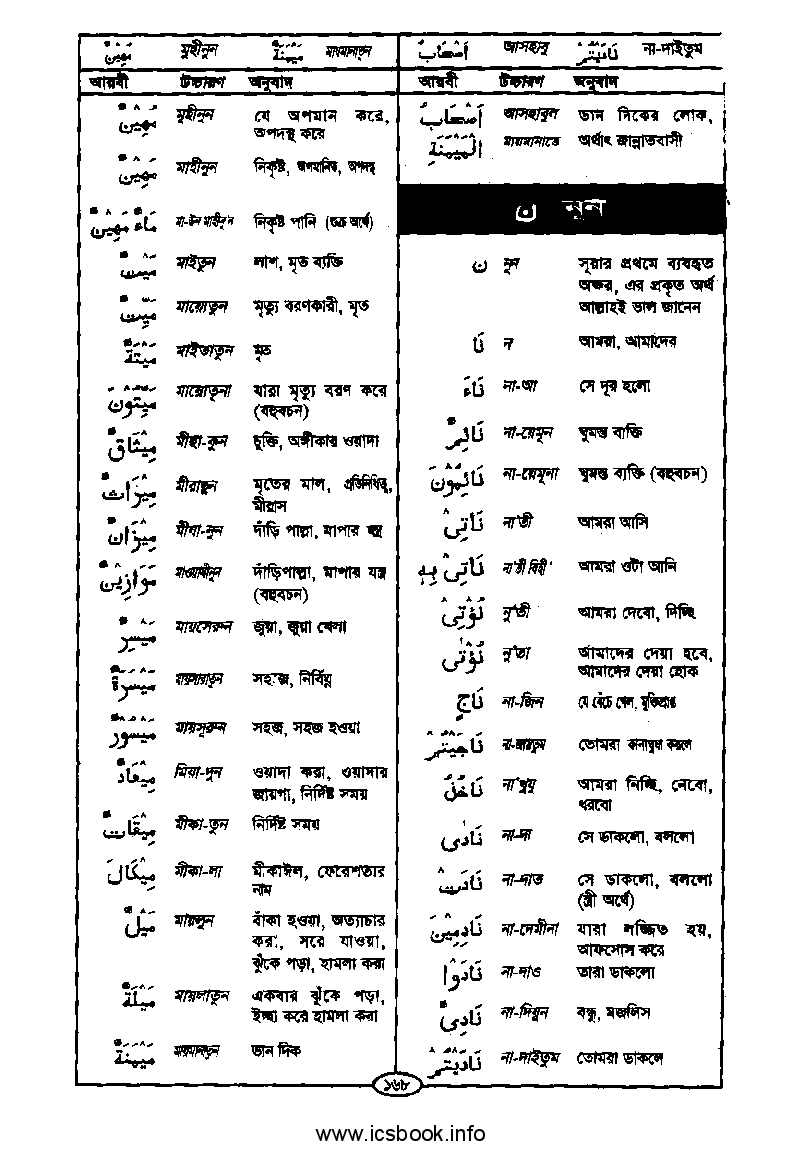 مُهِيْنٌ মুহীনুন مَيْمَنَةٌ মায়মানাতুন
আরবী উচ্চারণ অনুবাদ
مُهِيْنٌ মুহীনুন যে অপমান করে,
অপদস্থ করে
مَهِيْنٌ মাহীনুন নিকৃষ্ট, অপমানিত, অপদস্থ
مَاءٌ مَّهِيْنٌ মা-উন মাহীনুন নিকৃষ্ট পানি (শুক্র অর্থে)
مَيْتٌ মাইতুন লাশ, মৃত ব্যক্তি
مَيِّتٌ মায়্যেতুন মৃত্যু বরণকারী, মৃত
مَيْتَةٌ মাইতাতুন মৃত
مَيِّتُوْنَ মায়্যেতুনা যারা মৃত্যু বরণ করে
(বহুবচন)
مِيْثَاقٌ মীছা-কুন চুক্তি, অঙ্গীকার ওয়াদা
مِيْرَاثٌ মীরাছুন মৃতের মাল, প্রতিনিধিত্ব,
মীরাস
مِيْزَانٌ মীযা-নুন দাঁড়ি পাল্লা, মাপার যন্ত্র
مَوَازِيْنُ মাওয়াযীনুন দাঁড়িপাল্লা, মাপার যন্ত্র
(বহুবচন)
مَيْسِرٌ মায়সেরুন জুয়া, জুয়া খেলা
مَيْسَرَةٌ মায়সারাতুন সহজ, নির্বিঘ্ন
مَيْسُوْرٌ মায়সূরুন সহজ, সহজ হওয়া
مِيْعَادٌ মিয়া-দুন ওয়াদা করা, ওয়াদার
জায়গা, নির্দিষ্ট সময়
مِيْقَاتٌ মীকা-তুন নির্দিষ্ট সময়
مِيْكَالَ মীকা-লা মীকাঈল, ফেরেশতার
নাম
مَيْلٌ মায়লুন বাঁকা হওয়া, অত্যাচার
করা, সরে যাওয়া,
ঝুঁকে পড়া, হামলা করা
مَيْلَةٌ মায়লাতুন একবার ঝুঁকে পড়া,
ইচ্ছা করে হামলা করা
مَيْمَنَةٌ মায়মানাতুন ডান দিক
اَصْحَابُ আসহাবু نَادَيْتُمْ না-দাইতুম
আরবী উচ্চারণ অনুবাদ
اَصْحَابُ আসহাবুল ডান দিকের লোক,
الْمَيْمَنَةِ মায়মানাতে অর্থাৎ জান্নাতবাসী
ن নূন
ن নূন সূরার প্রথমে ব্যবহৃত
অক্ষর, এর প্রকৃত অর্থ
আল্লাহই ভাল জানেন
نَا ন আমরা, আমাদের
نَاءَ না-আ সে দূর হলো
نَائِمٌ না-য়েমুন ঘুমন্ত ব্যক্তি
نَائِمُوْنَ না-য়েমুনা ঘুমন্ত ব্যক্তি (বহুবচন)
نَأْتِىْ না'তী আমরা আসি
نَأْتِىْ بِهِ না'তী বিহী আমরা ওটা আনি
نُؤْتِىْ নু'তী আমরা দেবো, দিচ্ছি
نُؤْتٰى নু'তা আমাদের দেয়া হবে,
আমাদের দেয়া হোক
نَاجٍ না-জিন যে বেঁচে গেল, মুক্তিপ্রাপ্ত
نَاجَيْتُمْ না-জায়তুম তোমরা কানাঘুষা করলে
نَأْخُذُ না'খুযু আমরা নিচ্ছি, নেবো,
ধরবো
نَادٰى না-দা সে ডাকলো, বললো
نَادَتْ না-দাত সে ডাকলো, বললো
(স্ত্রী অর্থে)
نَادِمِيْنَ না-দেমীনা যারা লজ্জিত হয়,
আফসোস করে
نَادَوْا না-দাও তারা ডাকলো
نَادِىٌ না-দিয়ুন বন্ধু, মজলিস
نَادَيْتُمْ না-দাইতুম তোমরা ডাকলে
১৬৮
www.icsbook.info